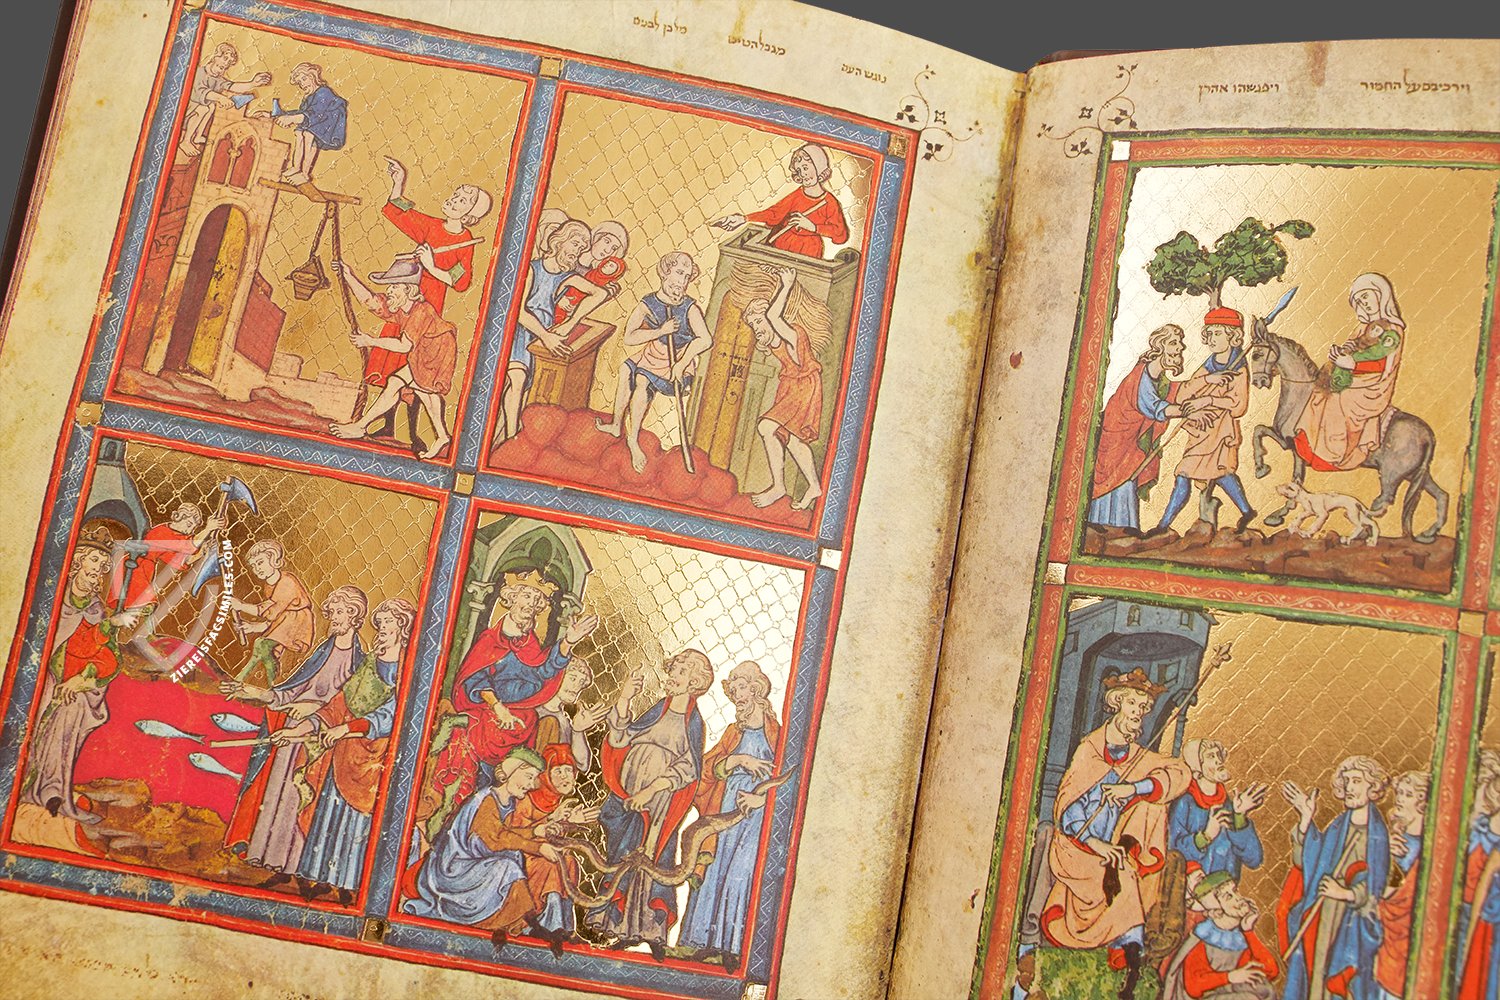 נוגש העם
מגבל הטיט
מלבן לבנים
וירכיבם על החמור
ויפגשהו אהרן
ZIEREISFACSIMILES.COM